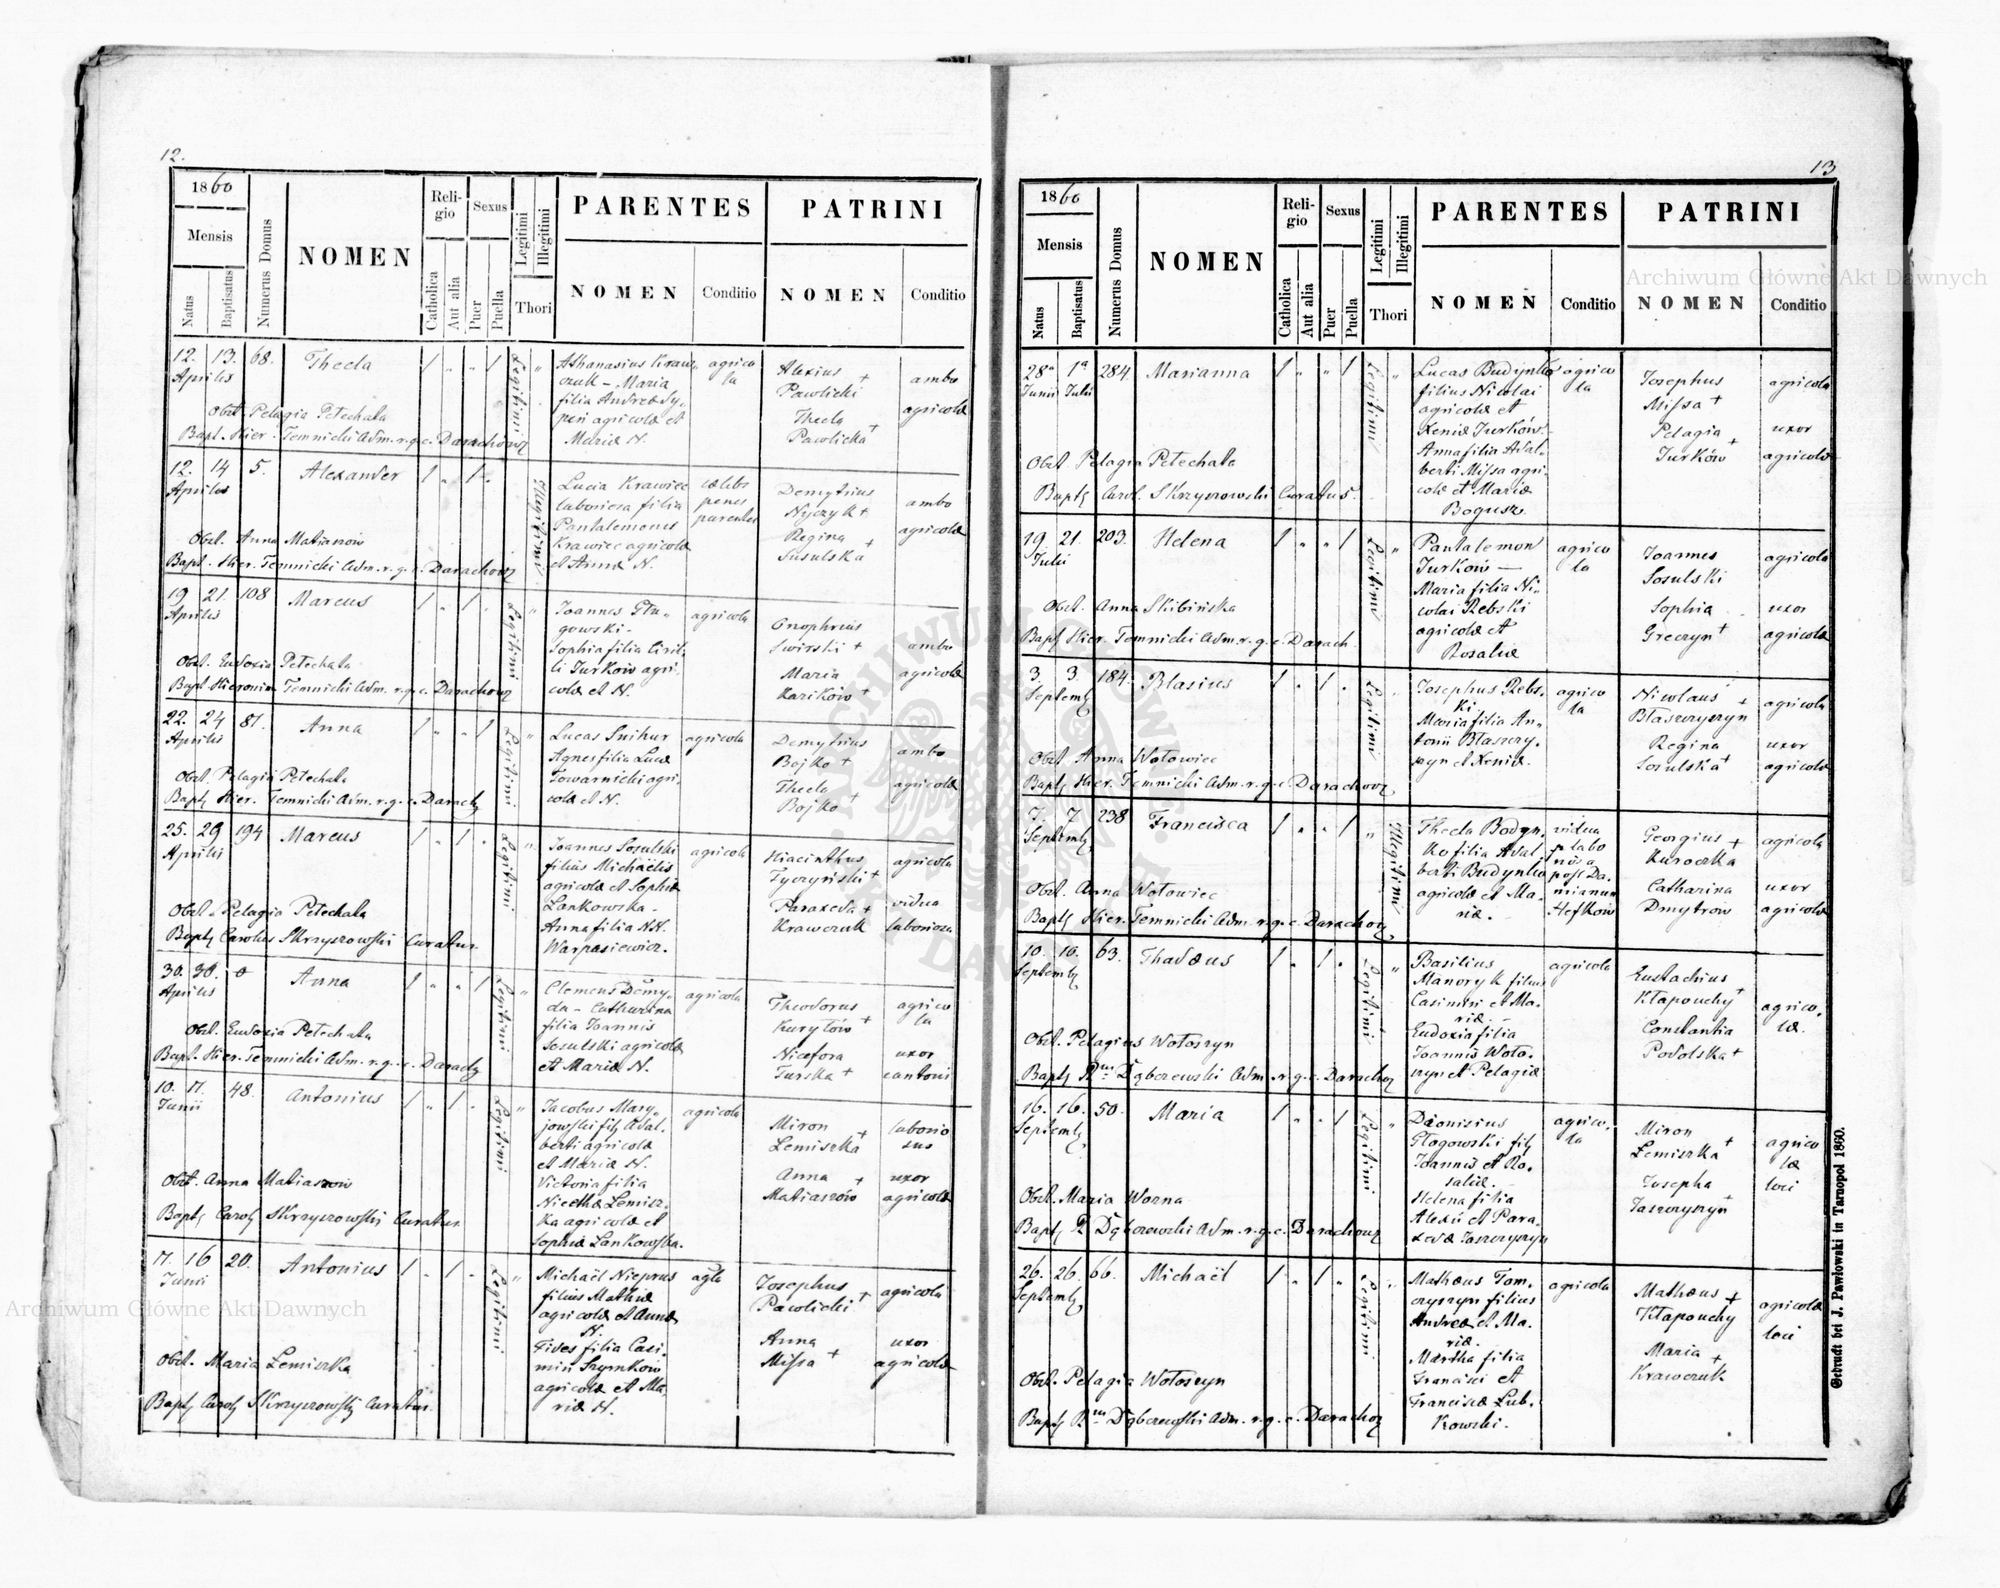 12.
1860
Mensis
Natus
Baptisatus
Numerus Domus
NOMEN
Reli-
gio
Catholica
Aut alia
Sexus
Puer
Puella
Legitimi
Illegitimi
Thori
PARENTES
NOMEN
Conditio
PATRINI
NOMEN
Conditio
12. 13. 68. Thecla
Aprilis
Legitimi
Athanasius Kraw
czuk – Maria
filia Andreæ Sy-
peń agricolæ et
Mariæ N.
agrico
la
Alexius +
Pawlicki
Thecla +
Pawlicka
ambo
agricolæ
Obst. Pelagia Petechala
Bapt. Hier. Temnicki Adm. r. g. c. Darachow
12. 14 5. Alexander
Aprilis
Illegitimi
Lucia Krawiec
laboriosa filia
Pantalemonis
Krawiec agricolæ
et Annæ N.
cælebs
penes
parentes
Demytrius
Nyczyk +
Regina +
Susulska
ambo
agricolæ
Obst. Anna Matiaszów
Bapt. Hier. Temnicki Adm. r. g. c. Darachow
19 21. 108 Marcus
Aprilis
Legitimi
Joannes Głu-
gowski -
Sophia filia Ciril-
li Jurków agri-
colæ et N.
agricola
Onophrius
Swirski +
Maria
Karików +
ambo
agricolæ
Obst. Eudoxia Petechala
Bapt. Hieronim Temnicki Adm. r. g. c. Darachow
22. 24 87. Anna
Aprilis
Legitimi
Lucas Snihur
Agnes filia Lucæ
Towarnicki agri-
colæ et N.
agricola
Demytrius
Bojko +
Thecla +
Bojko
ambo
agricolæ
Obst. Pelagia Petechala
Bapt. Hier. Temnicki Adm. r. g. c. Darach
25. 29 194 Marcus
Aprilis
Legitimi
Joannes Sosulski
filius Michaëlis
agricolæ et Sophiæ
Lankowska -
Anna filia NN.
Warpasiewicz.
agricola
Hiacinthus
Tyczyński +
Paraxeda +
Krawczuk
agricola
vidua
laboriosa
Obst. Pelagia Petechala
Bapt. Carolus Skrzyszowski Curatus.
30. 30. 0 Anna
Aprilis
Legitimi
Clemens Demy-
da – Catharina
filia Joannis
Sosulski agricolæ
et Mariæ N.
agricola
Theodorus
Kuryłów +
Nicefora
Turska +
agrico
la
uxor
cantoris
Obst. Eudoxia Petechala
Bapt. Hier. Temnicki Adm. r. g. c. Darach
10. 17. 48. Antonius
Junii
Legitimi
Jacobus Mary-
jowski fil. Adal-
berti agricolæ
et Mariæ N.
Victoria filia
Nicethæ Lemisz-
ka agricolæ et
Sophiæ Lankowska.
agricola
Miron +
Lemiszka
Anna +
Matiaszów
laborio
sus
uxor
agricolæ
Obst. Anna Matiaszów
Bapt. Carol. Skrzyszowski Curatus
17. 16 20. Antonius
Junii
Legitimi
Michaël Nieprus
filius Mathiæ
agricolæ et Annæ
N.
Fides filia Casi-
miri Szymków
agricolæ et Ma-
riæ N.
agla
Josephus +
Pawlicki
Anna +
Missa
agricola
uxor
agricolæ
Obst. Maria Lemiszka
Bapt. Carol. Skrzyszowski Curatus.
13
1860
Mensis
Natus
Baptisatus
Numerus Domus
NOMEN
Reli-
gio
Catholica
Aut alia
Sexus
Puer
Puella
Legitimi
Illegitimi
Thori
PARENTES
NOMEN
Conditio
PATRINI
NOMEN
Conditio
28a 1a 284. Marianna
Junii Julii
Legitimi
Lucas Budynko
filius Nicolai
agricolæ et
Xeniæ Jurków.
Anna filia Adal-
berti Missa agri-
colæ et Mariæ
Bogusz.
agrico
la
Josephus
Missa +
Pelagia +
Jurków
agricola
uxor
agricolæ
Obst. Pelagia Petechala
Bapt. Carol. Skrzyszowski Curatus.
19 21. 203. Helena
Julii
Legitimi
Pantalemon
Jurków —
Maria filia Ni-
colai Rebski
agricolæ et
Rosaliæ
agrico
la
Joannes
Sosulski
Sophia
Greczyn +
agricola
uxor
agricolæ
Obst. Anna Skibińska
Bapt. Hier. Temnicki Adm. r. g. c. Darach.
3. 3. 184. Blasius
Septemb
Legitimi
Josephus Rebs-
ki
Maria filia An-
tonii Błaszczy-
szyn et Xeniæ.
agrico
la
Nicolaus +
Błaszczyszyn
Regina
Sosulska +
agricola
uxor
agricolæ
Obst. Anna Wołowiec
Bapt. Hier. Temnicki Adm. r. g. c. Darachow
7. 7 238 Francisca
Septemb
Illegitimi
Thecla Bodyn-
ko filia Adal-
berti Budynko
agricolæ et Ma-
riæ.
vidua
post Da-
mianum
Hefków
Georgius +
Kuroczka
Catharina
Dmytrów
agricola
uxor
agricolæ
Obst. Anna Wołowiec
Bapt. Hier. Temnicki Adm. r. g. c. Darachow
10. 10. 63. Thadæus
Septemb
Legitimi
Basilius
Manoryk filius
Casimiri et Ma-
riæ. -
Eudoxia filia
Joannis Woło-
szyn et Pelagiæ
agricola
Eustachius
Kłapouchy +
Constantia
Podolska +
agrico-
læ.
Obst. Pelagia Wołoszyn
Bapt. Rms Dąbczewski Adm. r. g. c. Darachow
16. 16. 50. Maria
Septemb
Legitimi
Dionisius
Głogowski fil.
Joannis et Ro-
saliæ. -
Helena filia
Alexii et Para-
xedæ Jaszczyszyn
agrico-
la
Miron +
Lemiszka
Josepha +
Jaszczyszyn
agrico
læ
loci
Obst. Maria Worna
Bapt. R Dąbczewski Adm. r. g. c. Darachow
26. 26. 66. Michaël
Septemb
Legitimi
Mathæus Tom-
czyszyn filius
Andreæ et Ma-
riæ.
Martha filia
Francisci et
Franciscæ Lub-
kowski.
agricola
Mathæus +
Kłapouchy
Maria +
Krawczuk
agricolæ
loci
Obst. Pelagia Wołoszyn
Bapt. Rms Dąbczewski Adm. r. g. c. Darachow
Gedruckt bei J. Pawłowski in Tarnopol 1860.
Archiwum Główne Akt Dawnych
Archiwum Główne Akt Dawnych